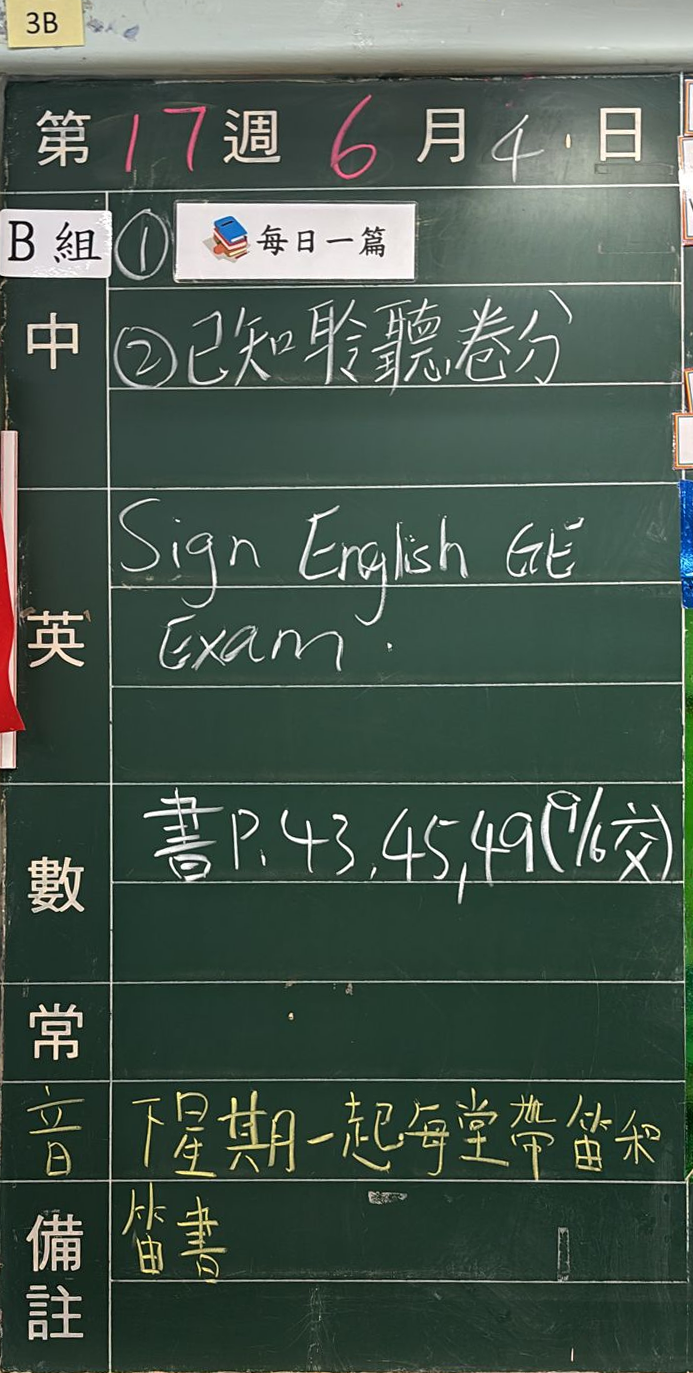 3B
第17週 6月4日
B組 ① 每日一篇
中 ②已知聆聽卷分
英 Sign English GE
Exam.
數 書P.43,45,49(9/6交)
常
音 下星期一起每堂帶笛和
備註 笛書